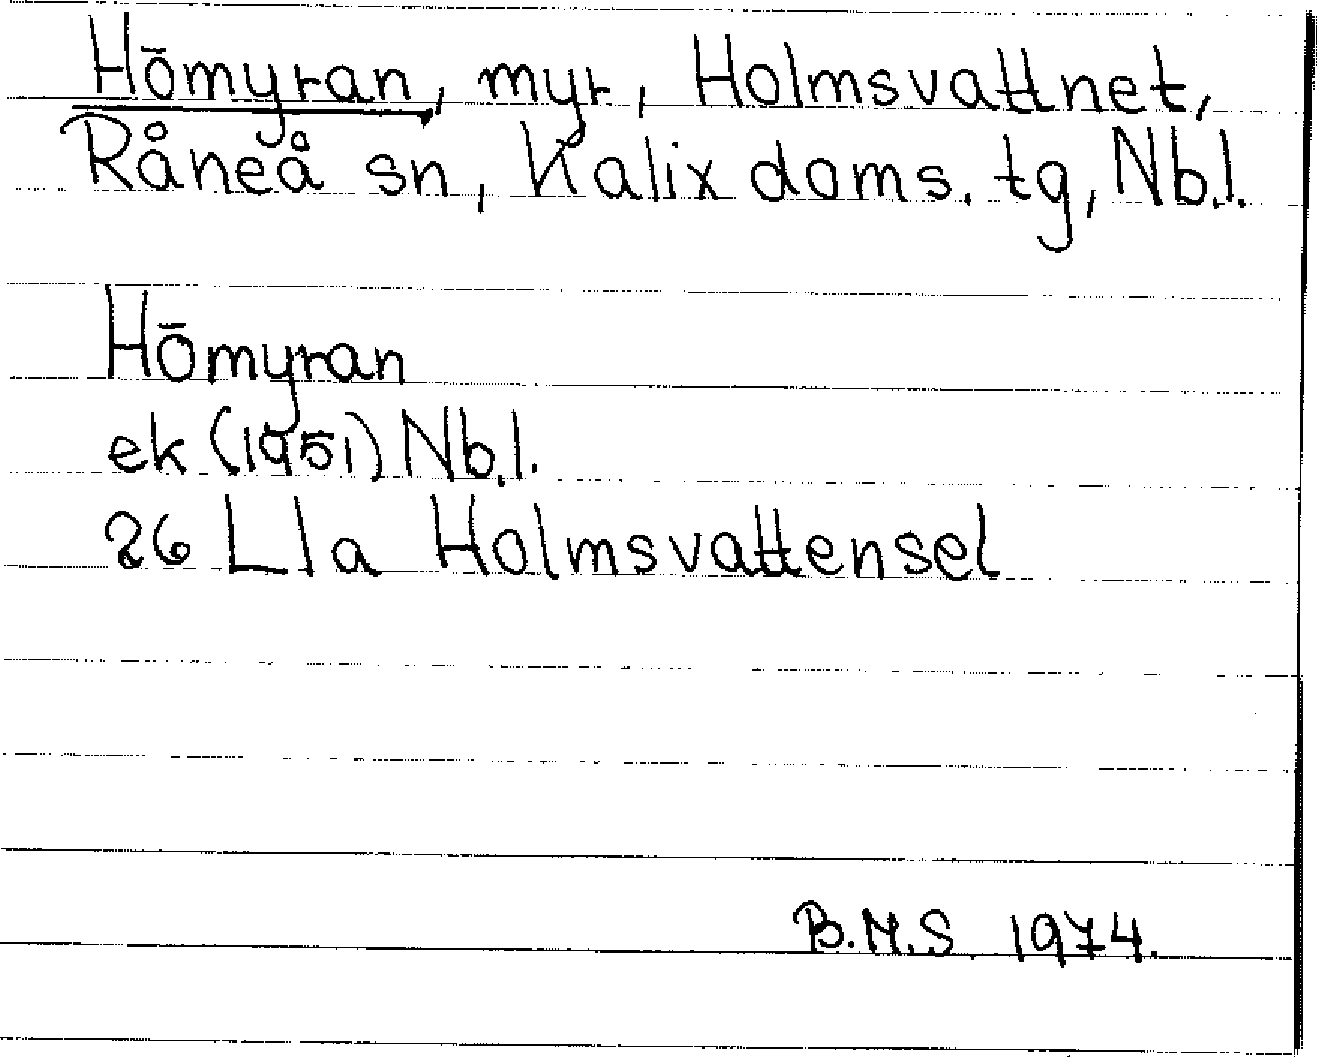 Hōmyran, myr, Holmsvattnet,
Råneå sn, Kalix doms. tg, Nb.l.
Hōmyran
ek (1951) Nb.l.
26 L 1 a Holmsvattensel
B.M.S. 1974.